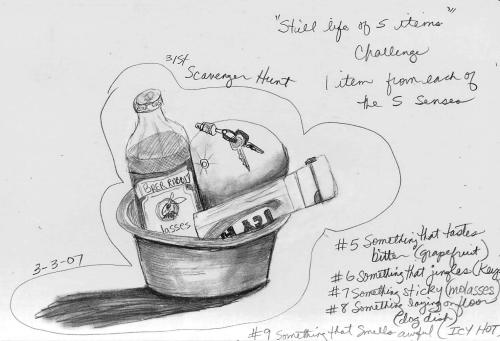 "Still life of 5 items"
Challenge
1 item from each of
the 5 Senses
31st
Scavenger Hunt
BRER RABBIT
lasses
ICY H
3-3-07
#5 Something that tastes
bitter (grapefruit)
#6 Something that jingles (Keys)
#7 Something sticky (molasses)
#8 Something laying on floor
(dog dish)
#9 Something that smells awful (ICY HOT)